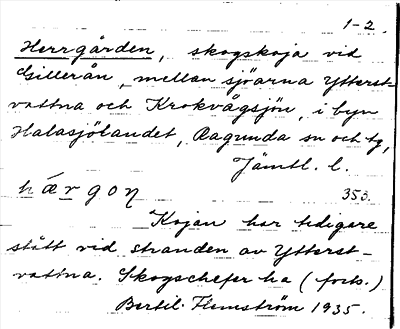 1-2.
Herrgården, skogskoja vid
Gillerån, mellan sjöarna Ytterst-
vattna och Krokvågsjön, i byn
Halasjölandet, Ragunda sn och tg,
Jämtl. l.
hǽrgoŋ 353.
Kojan har tidigare
stått vid stranden av Ytterst-
vattna. Skogschefer ha (forts.)
Bertil Flemström 1935.